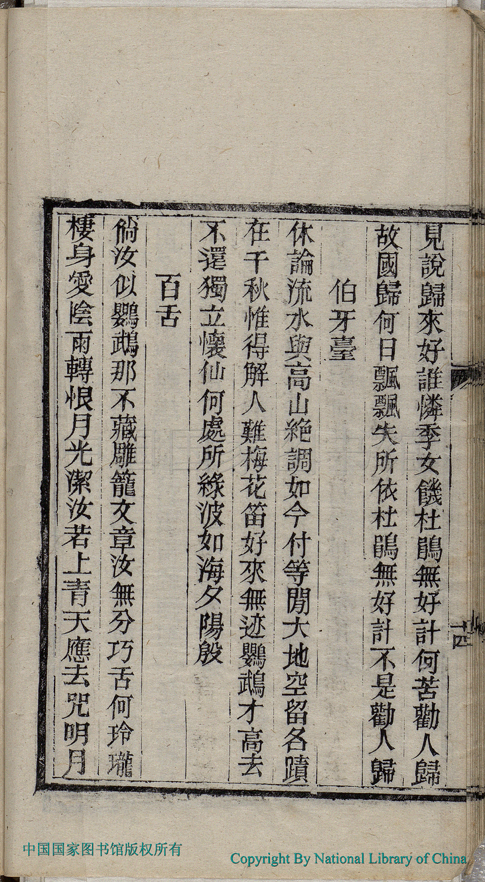 見說歸來好誰憐季女饑杜鵑無好計何苦勸人歸
故國歸何日飄飄失所依杜鵑無好計不是勸人歸
伯牙臺
休論流水與高山絶調如今付等閒大地空留各蹟
在千秋惟得解人難梅花笛好來無迹鸚鵡才高去
不還獨立懷仙何處所綠波如海夕陽殷
百舌
倘汝似鸚鵡那不藏雕籠文章汝無分巧舌何玲瓏
棲身愛陰雨轉恨月光潔汝若上青天應去咒明月
十四
中国国家图书馆版权所有
Copyright By National Library of China